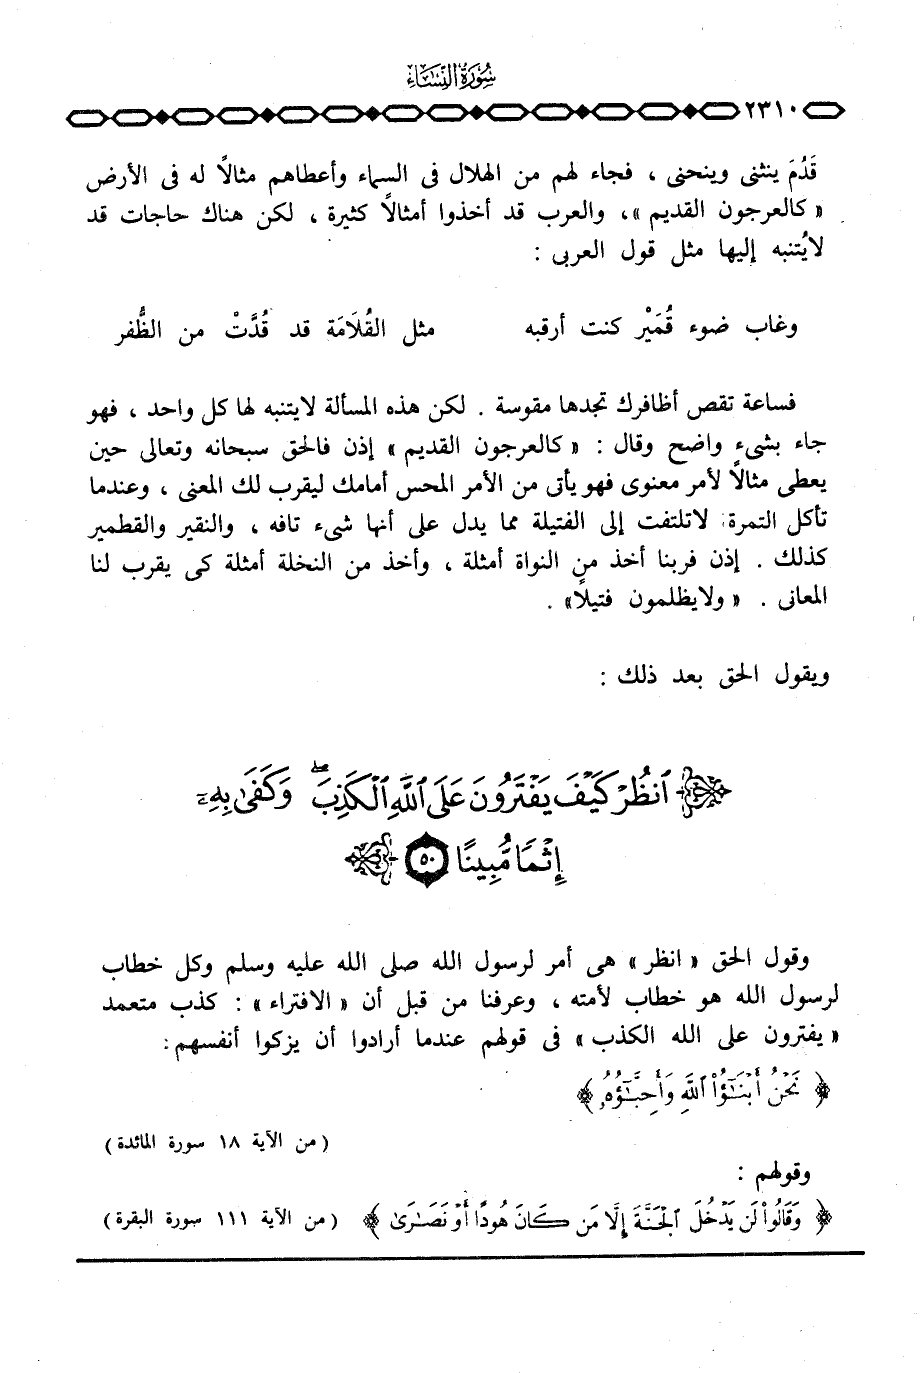 سُورَةُ النِّسَاء
٢٣١٠
قَدُمَ ينثنى وينحنى ، فجاء لهم من الهلال فى السماء وأعطاهم مثالاً له فى الأرض
« كالعرجون القديم »، والعرب قد أخذوا أمثالاً كثيرة ، لكن هناك حاجات قد
لايُتنبه إليها مثل قول العربى :
وغاب ضوء قُمَيْر كنت أرقبه مثل القُلَامَة قد قُدَّتْ من الظُّفر
فساعة تقص أظافرك تجدها مقوسة . لكن هذه المسألة لايتنبه لها كل واحد ، فهو
جاء بشىءٍ واضح وقال : « كالعرجون القديم » إذن فالحق سبحانه وتعالى حين
يعطى مثالاً لأمر معنوى فهو يأتى من الأمر المحس أمامك ليقرب لك المعنى ، وعندما
تأكل التمرة لاتلتفت إلى الفتيلة مما يدل على أنها شىء تافه ، والنقير والقطمير
كذلك . إذن فربنا أخذ من النواة أمثلة ، وأخذ من النخلة أمثلة كى يقرب لنا
المعانى . « ولايظلمون فتيلاً» .
ويقول الحق بعد ذلك :
ٱنظُرْ كَيْفَ يَفْتَرُونَ عَلَى ٱللَّهِ ٱلْكَذِبَ ۖ وَكَفَىٰ بِهِۦٓ
إِثْمًا مُّبِينًا ٥٠
وقول الحق « انظر » هى أمر لرسول الله صلى الله عليه وسلم وكل خطاب
لرسول الله هو خطاب لأمته ، وعرفنا من قبل أن « الافتراء » : كذب متعمد
« يفترون على الله الكذب » فى قولهم عندما أرادوا أن يزكوا أنفسهم:
﴿ نَحْنُ أَبْنَـٰٓؤُا۟ ٱللَّهِ وَأَحِبَّـٰٓؤُهُۥ ﴾
( من الآية ١٨ سورة المائدة )
وقولهم :
﴿ وَقَالُوا۟ لَن يَدْخُلَ ٱلْجَنَّةَ إِلَّا مَن كَانَ هُودًا أَوْ نَصَـٰرَىٰ ﴾ ( من الآية ١١١ سورة البقرة )